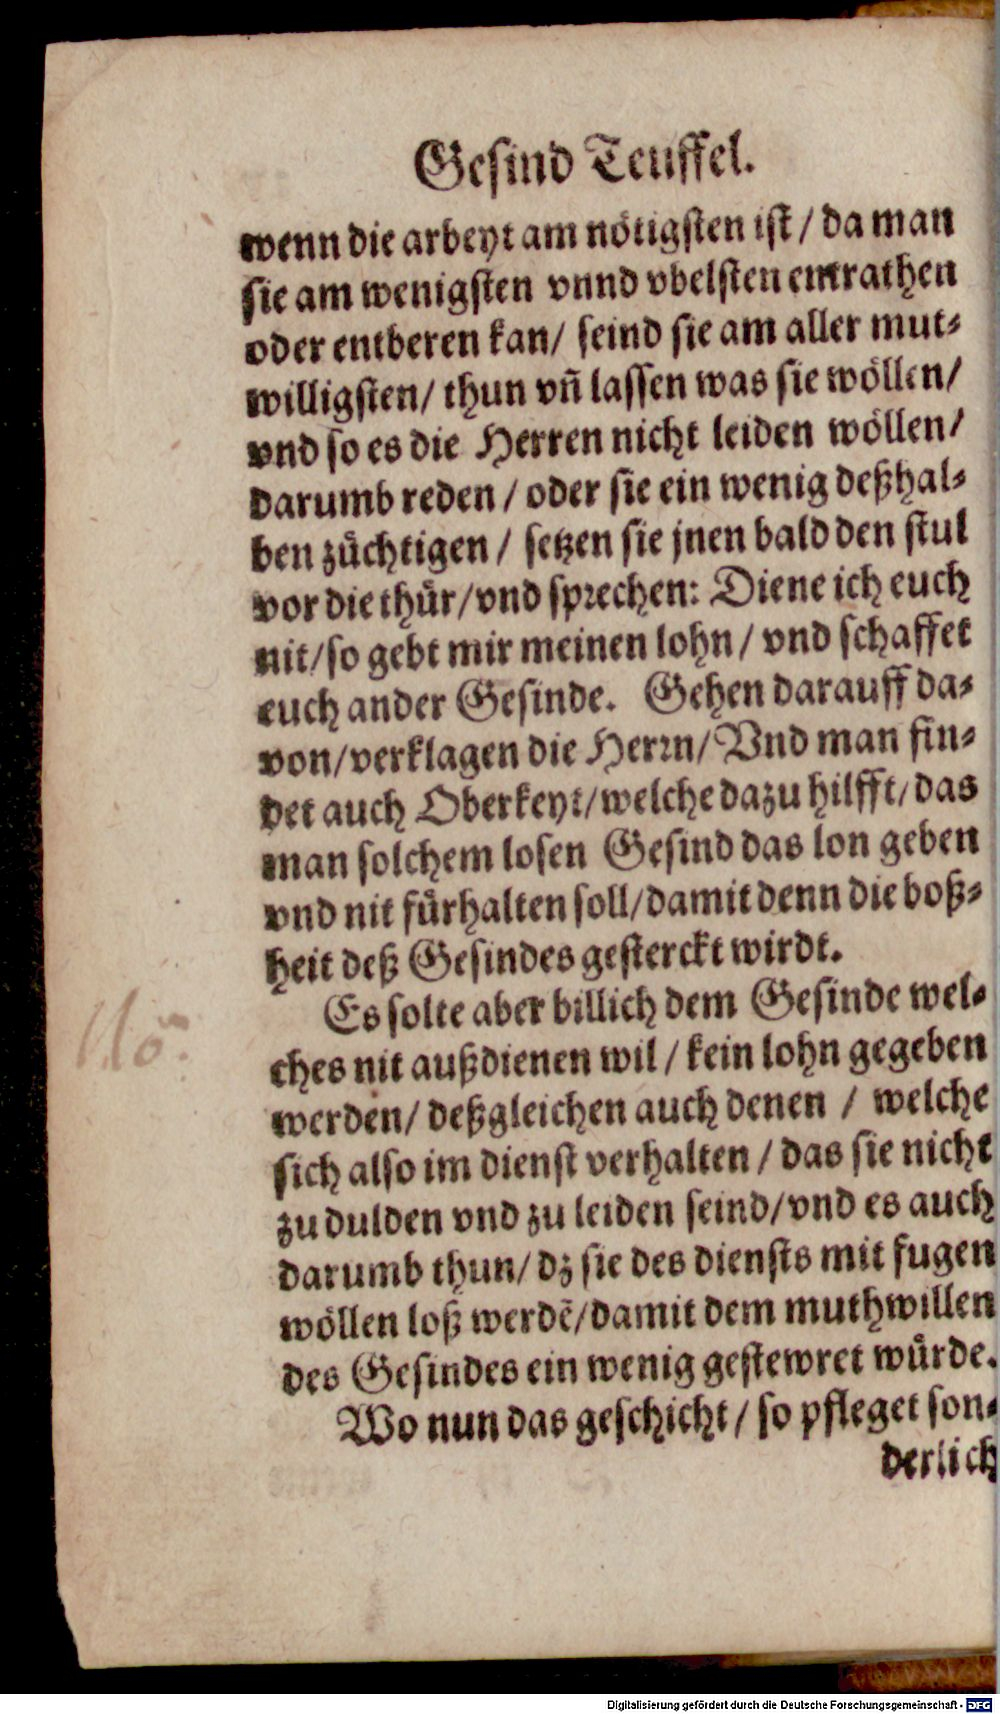 Gesind Teuffel.
wenn die arbeyt am nötigsten ist / da man
sie am wenigsten vnnd vbelsten entrathen
oder entberen kan/ seind sie am aller mut⸗
willigsten/ thun vñ lassen was sie wöllen/
vnd so es die Herren nicht leiden wöllen/
darumb reden / oder sie ein wenig deßhal⸗
ben züchtigen / setzen sie jnen bald den stul
vor die thür/vnd sprechen: Diene ich euch
nit/so gebt mir meinen lohn / vnd schaffet
euch ander Gesinde. Gehen darauff da⸗
von/verklagen die Herrn/ Vnd man fin⸗
det auch Oberkeyt/welche dazu hilfft/das
man solchem losen Gesind das lon geben
vnd nit fürhalten soll/damit denn die boß⸗
heit deß Gesindes gesterckt wirdt.
Es solte aber billich dem Gesinde wel⸗
ches nit außdienen wil / kein lohn gegeben
werden/ deßgleichen auch denen / welche
sich also im dienst verhalten / das sie nicht
zu dulden vnd zu leiden seind/vnd es auch
darumb thun/ dz sie des diensts mit fugen
wöllen loß werdẽ/damit dem muthwillen
des Gesindes ein wenig gestewret würde.
Wo nun das geschicht / so pfleget son⸗
derlich
Digitalisierung gefördert durch die Deutsche Forschungsgemeinschaft - DFG